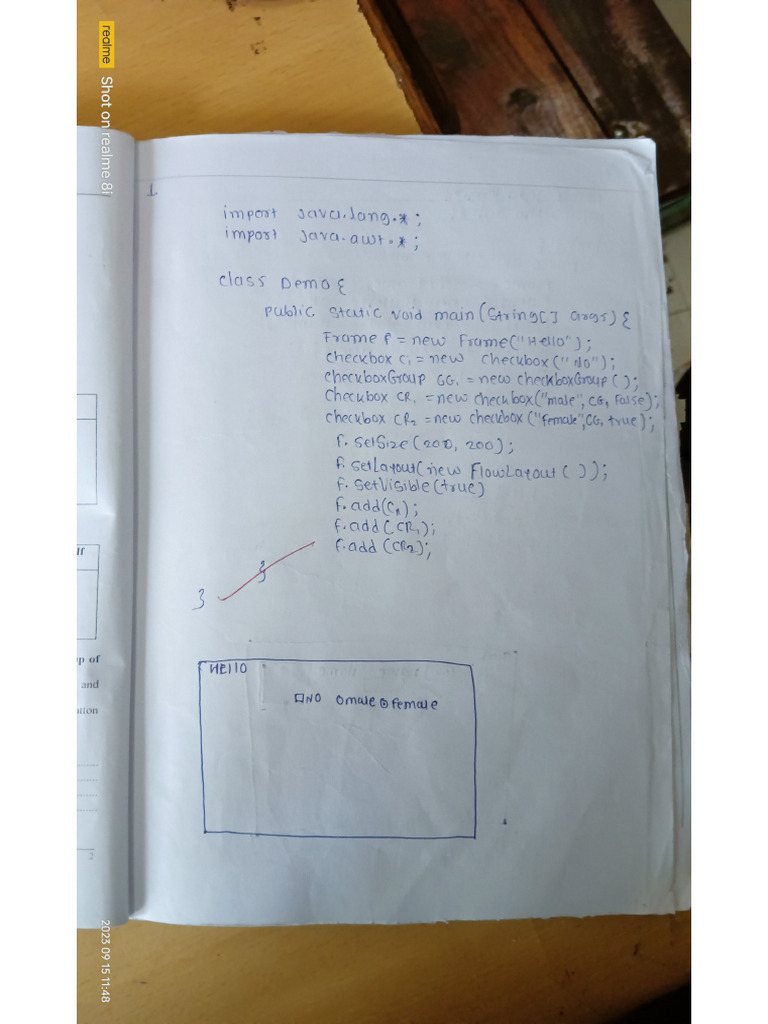 realme
Shot on realme 8i
1
import java.lang.*;
import java.awt.*;
class Demo{
public static void main(String[] args){
Frame f = new Frame("Hello");
checkbox C1 = new checkbox("No");
checkboxGroup CG1 = new checkboxGroup();
checkbox CR1 = new checkbox("male", CG, false);
checkbox CR2 = new checkbox("female", CG, true);
f.setSize(200, 200);
f.setLayout(new FlowLayout());
f.setVisible(true)
f.add(C1);
f.add(CR1);
f.add(CR2);
}
}
HEllO
NO male female
up of
and
2
2023 09 15 11:48